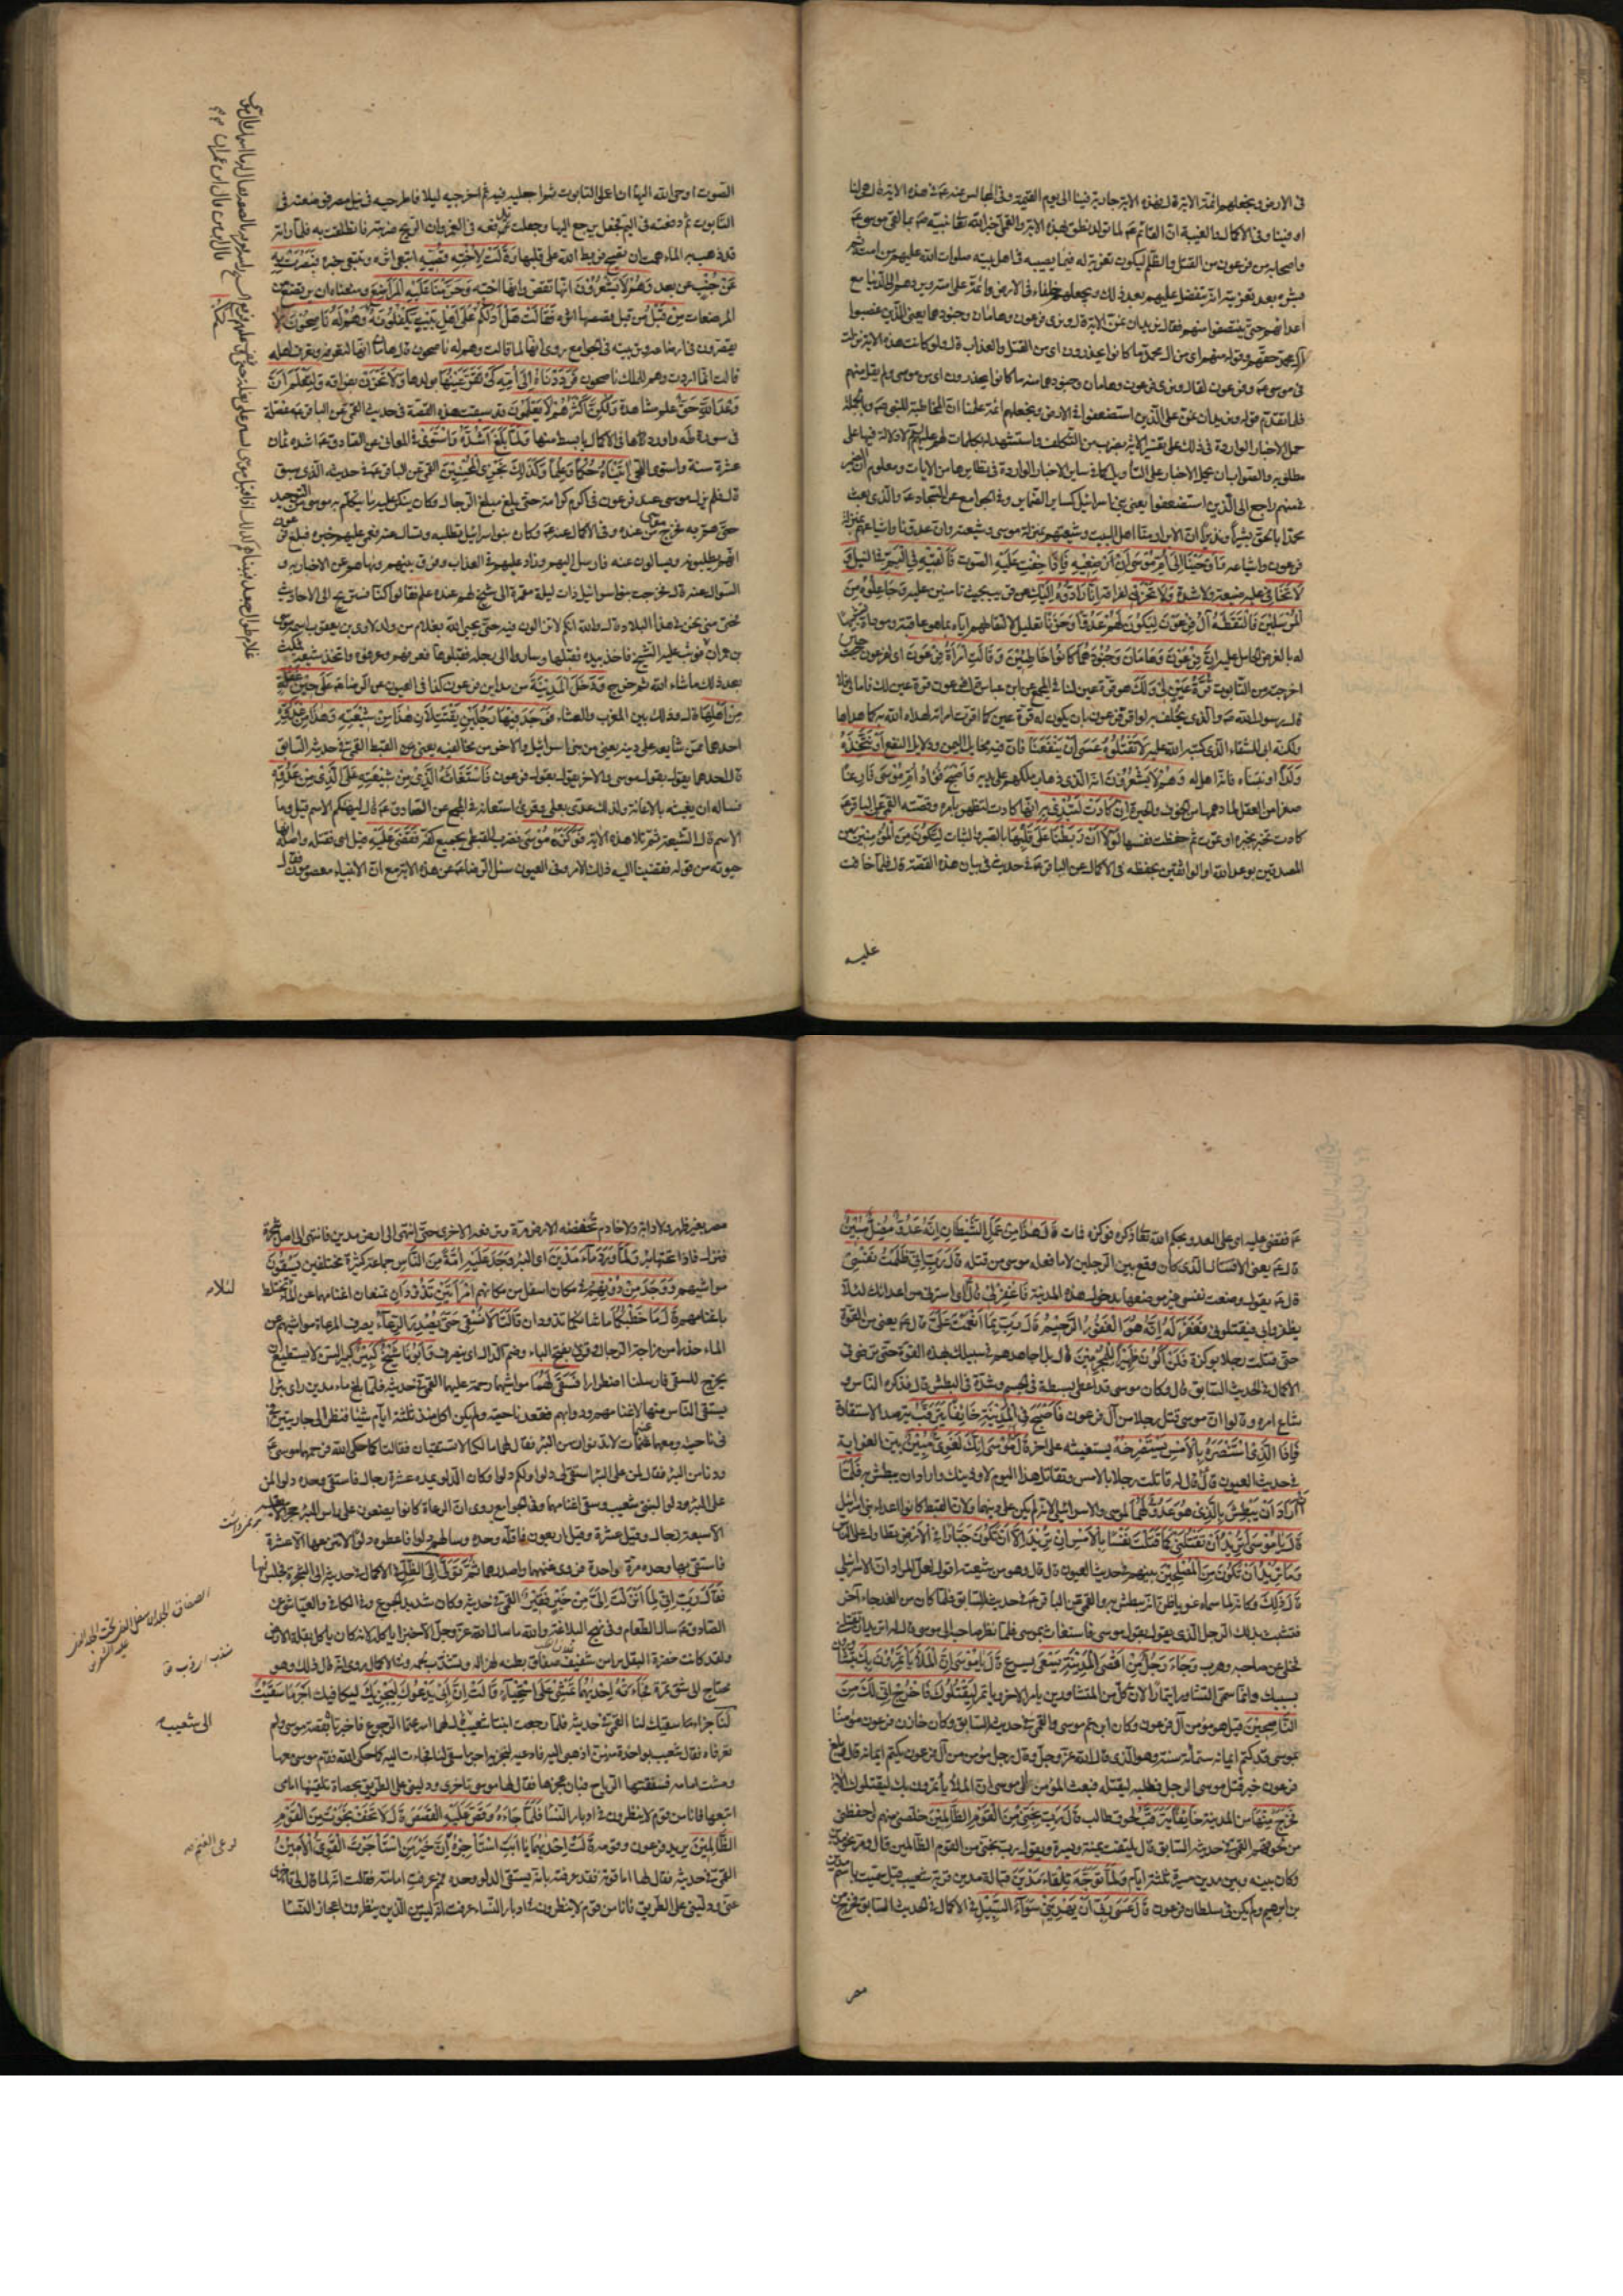 فى الارض ويجعلهم ائمة الاية قال فهذه الاية جارية فينا الى يوم القيمة وفى المجالس عنه ع فى هذه الاية قال هى لنا
او فينا وفى الاكمال والغيبة ان القائم ع لما تولد نطق بهذه الاية والقمى اخبر الله تعالى نبيه ص بما لقى موسى ع
واصحابه من فرعون من القتل والظلم ليكون تعزية له فيما يصيبه فى اهل بيته صلوات الله عليهم من امته ثم
بشره بعد تعزيته انه يتفضل عليهم بعد ذلك ويجعلهم خلفاء فى الارض وائمة على امته ويردهم الى الدنيا مع
اعدائهم حتى ينتصفوا منهم فقال نريد ان نمن الاية قال ونرى فرعون وهامان وجنودهما يعنى الذين غصبوا
آل محمد حقهم وقوله منهم اى من آل محمد ما كانوا يحذرون اى من القتل والعذاب قال ولو كانت هذه الاية نزلت
فى موسى ع وفرعون لقال ونرى فرعون وهامان وجنودهما منه ما كانوا يحذرون اى من موسى ولم يقل منهم
فلما تقدم قوله ونريد ان نمن على الذين استضعفوا فى الارض ونجعلهم ائمة علمنا ان المخاطبة للنبى ص
حمل الاخبار الواردة فى ذلك على تفسير الاية بضرب من التكلف واستشهد له بكلمات
مطلوبه والصواب ان يحمل الاخبار على التاويل كما فى ساير الاخبار الواردة فى نظايرها من الايات ومعلوم ان الضمير
فى منهم راجع الى الذين استضعفوا يعنى بنى اسرائيل كساير الضماير وفى الجوامع عن السجاد ع والذى بعث
محمدا بالحق بشيرا ونذيرا ان الابرار منا اهل البيت وشيعتهم بمنزلة موسى وشيعته وان عدونا واشياعهم بمنزلة
فرعون واشياعه وَاَوْحَيْنَا اِلٰى اُمِّ مُوسٰى اَنْ اَرْضِعِيهِ فَاِذَا خِفْتِ عَلَيْهِ الصوت فَاَلْقِيهِ فِى الْيَمِّ فى النيل وَ
لَا تَخَافِى عليه ضيعة ولا شدة وَلَا تَحْزَنِى لفراقه اِنَّا رَادُّوهُ اِلَيْكِ عن قريب بحيث تامنين عليه وَجَاعِلُوهُ مِنَ
الْمُرْسَلِينَ فَالْتَقَطَهُ آلُ فِرْعَوْنَ لِيَكُونَ لَهُمْ عَدُوًّا وَحَزَنًا تعليل لالتقاطهم اياه بما هو عاقبته
له بالغرض الحامل عليه اِنَّ فِرْعَوْنَ وَهَامَانَ وَجُنُودَهُمَا كَانُوا خَاطِئِينَ وَقَالَتِ امْرَاَةُ فِرْعَوْنَ اى لفرعون حين
اخرجته من التابوت قُرَّةُ عَيْنٍ لِى وَلَكَ هو قرة عين لنا فى المجمع عن ابن عباس قال فرعون قرة عين لك فاما لى فلا
قال رسول الله ص والذى يحلف به لو اقر فرعون بان يكون له قرة عين كما اقرت امراته لهداه الله به كما هداها
ولكنه ابى للشقاء الذى كتبه الله عليه لَا تَقْتُلُوهُ عَسٰى اَنْ يَنْفَعَنَا فان فيه مخايل اليمن ودلايل النفع اَوْ نَتَّخِذَهُ
وَلَدًا او نتبناه فانه اهل له وَهُمْ لَا يَشْعُرُونَ انه الذى ذهاب ملكهم على يديه وَاَصْبَحَ فُؤَادُ اُمِّ مُوسٰى فَارِغًا
صفرا من العقل لما دهمها من الخوف والحيرة اِنْ كَادَتْ لَتُبْدِى بِهِ انها كادت لتظهر بامره وقصته القمى عن الباقر ع
كادت تخبر بخبره او تموت ثم حفظت نفسها لَوْلَا اَنْ رَبَطْنَا عَلٰى قَلْبِهَا بالصبر والثبات لِتَكُونَ مِنَ الْمُؤْمِنِينَ من
المصدقين بوعد الله او الواثقين بحفظه فى الاكمال عن الباقر ع فى حديث فى بيان هذه القصة قال فلما خافت
عليه
الصوت اوحى الله اليها ان اعملى التابوت ثم اجعليه فيه ثم اخرجيه ليلا فاطرحيه فى نيل مصر فوضعته فى
التابوت ثم دفعته فى اليم فجعل يرجع اليها وجعلت تدفعه فى الغمر وان الريح ضربته فانطلقت به فلما راته
قد ذهب به الماء همت ان تصيح فربط الله على قلبها وَقَالَتْ لِاُخْتِهِ قُصِّيهِ اتبعى اثره وتتبعى خبره فَبَصُرَتْ بِهِ
عَنْ جُنُبٍ عن بعد وَهُمْ لَا يَشْعُرُونَ انها تقص وانها اخته وَحَرَّمْنَا عَلَيْهِ الْمَرَاضِعَ ومنعناه ان يرتضع من
المرضعات مِنْ قَبْلُ من قبل قصصها اثره فَقَالَتْ هَلْ اَدُلُّكُمْ عَلٰى اَهْلِ بَيْتٍ يَكْفُلُونَهُ وَهُمْ لَهُ نَاصِحُونَ لا
يقصرون فى ارضاعه وتربيته فى الجوامع روى انها لما قالت وهم له ناصحون قال هامان انها لتعرفه وتعرف اهله
قالت انما اردت وهم للملك ناصحون فَرَدَدْنَاهُ اِلٰى اُمِّهِ كَىْ تَقَرَّ عَيْنُهَا بولدها وَلَا تَحْزَنَ بفراقه وَلِتَعْلَمَ اَنَّ
وَعْدَ اللّٰهِ حَقٌّ علم مشاهدة وَلٰكِنَّ اَكْثَرَهُمْ لَا يَعْلَمُونَ وقد سبقت هذه القصة فى حديث القمى عن الباقر ع مفصلة
فى سورة طه واوردناها فى الاكمال بابسط منها وَلَمَّا بَلَغَ اَشُدَّهُ وَاسْتَوٰى فى المعانى عن الصادق ع اشده ثمان
عشرة سنة واستوى التحى آتَيْنَاهُ حُكْمًا وَعِلْمًا وَكَذٰلِكَ نَجْزِى الْمُحْسِنِينَ القمى عن الباقر ع فى حديثه الذى سبق
قال فلم يزل موسى عند فرعون فى اكرم كرامة حتى بلغ مبلغ الرجال وكان ينكر عليه ما يتكلم به موسى من التوحيد
حتى هم به فخرج موسى من عنده وفى الاكمال عنه ع وكان بنو اسرائيل تطلبه وتسال عنه فعمى عليهم خبره فبلغ فرعون
انهم يطلبونه ويسالون عنه فارسل اليهم وزاد عليهم فى العذاب وفرق بينهم ونهاهم عن الاخبار به و
السؤال عنه قال فخرجت بنو اسرائيل ذات ليلة مقمرة الى شيخ لهم عنده علم فقالوا كنا نستريح الى الاحاديث
فحتى متى نحن فى هذا البلاء قال والله انكم لا تزالون فيه حتى يحيى الله بغلام من ولد لاوى بن يعقوب اسمه موسى
بن عمران فوثب عليه الشيخ فاخذ بيده فقبلها وساروا الى رجله فقبلوها فعرفهم وعرفوه واتخذ شيعة فمكث
بعد ذلك ما شاء الله ثم خرج وَدَخَلَ الْمَدِينَةَ من مداين فرعون كذا فى العيون عن الرضا ع عَلٰى حِينِ غَفْلَةٍ
مِنْ اَهْلِهَا قال وذلك بين المغرب والعشاء فَوَجَدَ فِيهَا رَجُلَيْنِ يَقْتَتِلَانِ هٰذَا مِنْ شِيعَتِهِ وَهٰذَا مِنْ عَدُوِّهِ
احدهما ممن شايعه على دينه يعنى من بنى اسرائيل والاخر من مخالفيه يعنى من القبط القمى فى حديثه السابق
قال احدهما يقول بقول موسى والاخر يقول بقول فرعون فَاسْتَغَاثَهُ الَّذِى مِنْ شِيعَتِهِ عَلَى الَّذِى مِنْ عَدُوِّهِ
فساله ان يغيثه بالاعانة ولذلك عدى بعلى وقرئ استعانه فى المجمع عن الصادق ع قال ليهنكم الاسم قيل وما
الاسم قال الشيعة ثم تلا هذه الاية فَوَكَزَهُ مُوسٰى فضرب القبطى بجميع كفه فَقَضٰى عَلَيْهِ قيل اى فقتله واصله انهى
حيوته من قوله فقضينا اليه ذلك الامر وفى العيون سئل الرضا ع عن هذه الاية مع ان الانبياء معصومون فقال
ع فقضى عليه اى على العدو بحكم الله تعالى ذكره فوكزه فمات قَالَ هٰذَا مِنْ عَمَلِ الشَّيْطَانِ اِنَّهُ عَدُوٌّ مُضِلٌّ مُبِينٌ
قال ع يعنى الاقتتال الذى كان وقع بين الرجلين لا ما فعله موسى من قتله قَالَ رَبِّ اِنِّى ظَلَمْتُ نَفْسِى
قال ع يقول وضعت نفسى غير موضعها بدخول هذه المدينة فَاغْفِرْ لِى قال اى استرنى من اعدائك لئلا
يظفروا بى فيقتلونى فَغَفَرَ لَهُ اِنَّهُ هُوَ الْغَفُورُ الرَّحِيمُ قَالَ رَبِّ بِمَا اَنْعَمْتَ عَلَىَّ قال ع يعنى من القوة
حتى قتلت رجلا بوكزة فَلَنْ اَكُونَ ظَهِيرًا لِلْمُجْرِمِينَ قال بل اجاهدهم فى سبيلك بهذه القوة حتى ترضى فى
الاكمال فى الحديث السابق قال وكان موسى قد اعطى بسطة فى الجسم وشدة فى البطش قال فذكره الناس و
شاع امره وقالوا ان موسى قتل رجلا من آل فرعون فَاَصْبَحَ فِى الْمَدِينَةِ خَائِفًا يَتَرَقَّبُ يترصد الاستقادة
فَاِذَا الَّذِى اسْتَنْصَرَهُ بِالْاَمْسِ يَسْتَصْرِخُهُ يستغيثه على اخر قَالَ لَهُ مُوسٰى اِنَّكَ لَغَوِىٌّ مُبِينٌ بين الغواية
فى حديث العيون قال قال له قاتلت رجلا بالامس وتقاتل هذا اليوم لاؤدبنك واراد ان يبطش به فَلَمَّا
اَنْ اَرَادَ اَنْ يَبْطِشَ بِالَّذِى هُوَ عَدُوٌّ لَهُمَا لموسى والاسرائيلى لانه لم يكن على دينهما ولان القبط كانوا اعداء بنى اسرائيل
قَالَ يَا مُوسٰى اَتُرِيدُ اَنْ تَقْتُلَنِى كَمَا قَتَلْتَ نَفْسًا بِالْاَمْسِ اِنْ تُرِيدُ اِلَّا اَنْ تَكُونَ جَبَّارًا فِى الْاَرْضِ تطاول على الناس
وَمَا تُرِيدُ اَنْ تَكُونَ مِنَ الْمُصْلِحِينَ بينهم فى حديث العيون قال قال وهو من شيعته اقول لعل المراد ان الاسرائيلى
قال ذلك وكانه لما سماه غويا ظن انه يبطش به والقمى عن الباقر ع فى حديثه السابق فلما كان من الغد جاء آخر
فتشبث بذلك الرجل الذى يقول بقول موسى فاستغاث بموسى فلما نظر صاحبه الى موسى قال له اتريد ان تقتلنى
فخلى عن صاحبه وهرب وَجَاءَ رَجُلٌ مِنْ اَقْصَى الْمَدِينَةِ يَسْعٰى يسرع قَالَ يَا مُوسٰى اِنَّ الْمَلَاَ يَأْتَمِرُونَ بِكَ يتشاورون
بسببك وانما سمى التشاور ايتمارا لان كلا من المتشاورين يامر الاخر وياتمر لِيَقْتُلُوكَ فَاخْرُجْ اِنِّى لَكَ مِنَ
النَّاصِحِينَ قيل هو مؤمن آل فرعون وكان ابن عم موسى والقمى فى حديثه السابق وكان خازن فرعون مؤمنا
بموسى قد كتم ايمانه ستمائة سنة وهو الذى قال الله عز وجل وقال رجل مؤمن من آل فرعون يكتم ايمانه قال وبلغ
فرعون خبر قتل موسى الرجل فطلبه ليقتله فبعث المؤمن الى موسى ان الملا ياتمرون بك ليقتلوك الاية
فَخَرَجَ مِنْهَا من المدينة خَائِفًا يَتَرَقَّبُ لحوق طالب قَالَ رَبِّ نَجِّنِى مِنَ الْقَوْمِ الظَّالِمِينَ خلصنى منهم واحفظنى
من لحوقهم القمى فى حديثه السابق قال يلتفت يمنة ويسرة ويقول رب نجنى من القوم الظالمين قال ومر نحو مدين
وكان بينه وبين مدين مسيرة ثلثة ايام وَلَمَّا تَوَجَّهَ تِلْقَاءَ مَدْيَنَ قبالة مدين قرية شعيب قيل سميت باسم مدين
بن ابراهيم ولم يكن فى سلطان فرعون قَالَ عَسٰى رَبِّى اَنْ يَهْدِيَنِى سَوَاءَ السَّبِيلِ فى الاكمال فى الحديث السابق فخرج من
مصر
مصر بغير ظهر ولا دابة ولا خادم تخفضه الارض مرة وترفعه الاخرى حتى انتهى الى ارض مدين فانتهى الى اصل شجرة
فنزل فاذا تحتها بئر وَلَمَّا وَرَدَ مَاءَ مَدْيَنَ اى البئر وَجَدَ عَلَيْهِ اُمَّةً مِنَ النَّاسِ جماعة كثيرة مختلفين يَسْقُونَ
مواشيهم وَوَجَدَ مِنْ دُونِهِمُ فى مكان اسفل من مكانهم امْرَاَتَيْنِ تَذُودَانِ تمنعان اغنامهما عن الماء لئلا تختلط
باغنامهم قَالَ مَا خَطْبُكُمَا ما شانكما تذودان قَالَتَا لَا نَسْقِى حَتّٰى يُصْدِرَ الرِّعَاءُ يصرف الرعاة مواشيهم عن
الماء حذرا من مزاحمة الرجال وقرئ بفتح الياء وضم الدال اى ينصرف وَاَبُونَا شَيْخٌ كَبِيرٌ كبير السن لا يستطيع ان
يخرج للسقى فارسلنا اضطرارا فَسَقٰى لَهُمَا مواشيهما رحمة عليهما القمى فى حديثه فلما بلغ ماء مدين راى بئرا
يستقى الناس منها لاغنامهم ودوابهم فقعد ناحية ولم يكن اكل منذ ثلثة ايام شيئا فنظر الى جاريتين
فى ناحية ومعهما غنيمات لا تدنوان من البئر فقال لهما ما لكما لا تستقيان فقالتا كما حكى الله فرحمهما موسى ع
ودنا من البئر فقال لمن على البئر استقى لى دلوا ولكم دلوا وكان الدلو يمده عشرة رجال فاستقى وحده دلوا لمن
على البئر ودلوا لبنتى شعيب وسقى اغنامهما وفى الجوامع روى ان الرعاة كانوا يضعون على راس البئر حجرا لا يقله
الا سبعة رجال وقيل عشرة وقيل اربعون فاقله وحده وسالهم دلوا فاعطوه دلوا لا ينزعها الا عشرة
فاستقى بها وحده مرة واحدة فروى غنمهما واصدرهما ثُمَّ تَوَلّٰى اِلَى الظِّلِّ فى الاكمال فى حديثه الى الشجرة فجلس فيها
فَقَالَ رَبِّ اِنِّى لِمَا اَنْزَلْتَ اِلَىَّ مِنْ خَيْرٍ فَقِيرٌ القمى فى حديثه وكان شديد الجوع وفى الكافى والعياشى عن
الصادق ع سال الطعام وفى نهج البلاغة والله ما ساله الله عز وجل الا خبزا ياكله لانه كان ياكل بقلة الارض
ولقد كانت خضرة البقل ترى من شفيف صفاق بطنه لهزاله وتشذب لحمه وفى الاكمال روى انه قال ذلك وهو
محتاج الى شق تمرة فَجَاءَتْهُ اِحْدٰيهُمَا تَمْشِى عَلَى اسْتِحْيَاءٍ قَالَتْ اِنَّ اَبِى يَدْعُوكَ لِيَجْزِيَكَ ليكافيك اَجْرَ مَا سَقَيْتَ
لَنَا جزاء ما سقيك لنا القمى فى حديثه فلما رجعت ابنتا شعيب قال لهما اسرعتما الرجوع فاخبرتاه بقصة موسى ولم
تعرفاه فقال شعيب لواحدة منهن اذهبى اليه فادعيه لنجزيه اجر ما سقى لنا فجاءت اليه كما حكى الله فقام موسى معها
ومشت امامه فسفقتها الرياح فبان عجزها فقال لها موسى تاخرى ودلينى على الطريق بحصاة تلقينها امامى
اتبعها فانا من قوم لا ينظرون فى ادبار النساء فَلَمَّا جَاءَهُ وَقَصَّ عَلَيْهِ الْقَصَصَ قَالَ لَا تَخَفْ نَجَوْتَ مِنَ الْقَوْمِ
الظَّالِمِينَ يريد فرعون وقومه قَالَتْ اِحْدٰيهُمَا يَا اَبَتِ اسْتَأْجِرْهُ اِنَّ خَيْرَ مَنِ اسْتَأْجَرْتَ الْقَوِىُّ الْاَمِينُ
القمى فى حديثه فقال لها اما قوته فقد عرفته بانه يستقى الدلو وحده فبم عرفت امانته فقالت انه لما قال لى تاخرى
عنى ودلينى على الطريق فانا من قوم لا ينظرون فى ادبار النساء عرفت انه ليس من الذين ينظرون اعجاز النساء
لئلا
الى شعيب
لرعى الغنم